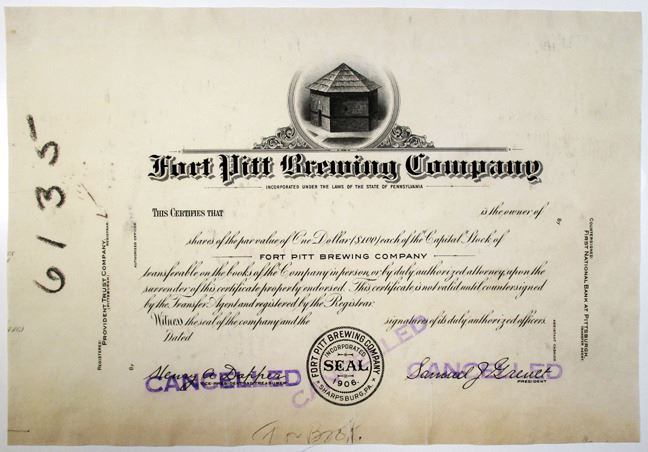 Fort Pitt Brewing Company
INCORPORATED UNDER THE LAWS OF THE STATE OF PENNSYLVANIA
THIS CERTIFIES THAT is the owner of
shares of the par value of One Dollar ($1.00) each of the Capital Stock of
FORT PITT BREWING COMPANY
transferable on the books of the Company in person, or by duly authorized attorney, upon the
surrender of this certificate properly endorsed. This certificate is not valid until countersigned
by the Transfer Agent and registered by the Registrar.
Witness the seal of the company and the signatures of its duly authorized officers.
Dated
CANCELLED
CANCELLED
CANCELLED
VICE-PRESIDENT AND TREASURER
FORT PITT BREWING COMPANY
INCORPORATED
SEAL
1906.
SHARPSBURG, PA.
Samuel J.
PRESIDENT
6135
REGISTERED:
PROVIDENT TRUST COMPANY,
PITTSBURGH,
REGISTRAR
BY
AUTHORIZED OFFICER
COUNTERSIGNED:
FIRST NATIONAL BANK AT PITTSBURGH,
TRANSFER AGENT
BY
ASSISTANT CASHIER